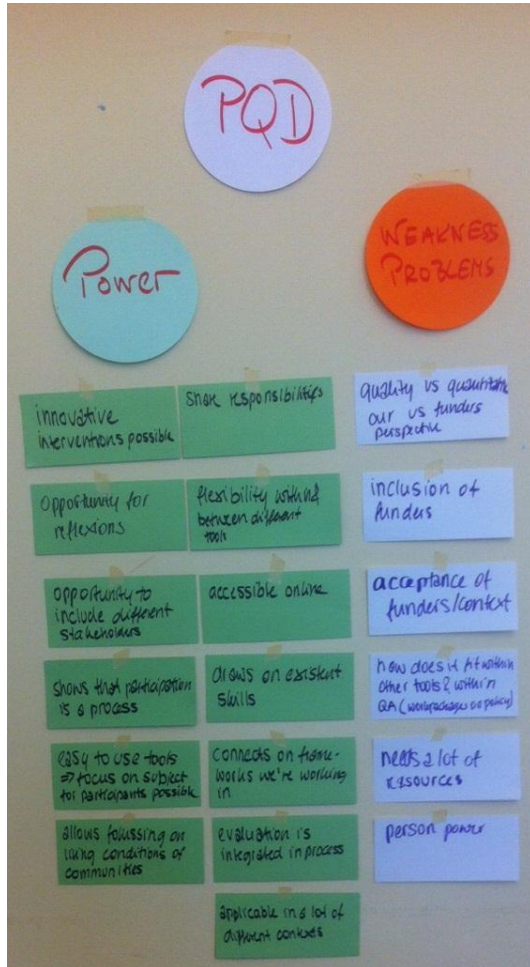 PQD
Power
WEAKNESS
PROBLEMS
innovative
interventions possible
opportunity for
reflexions
opportunity to
include different
stakeholders
shows that participation
is a process
easy to use tools
⇒ focus on subject
for participants possible
allows focussing on
living conditions of
communities
share responsibilities
flexibility within &
between different
tools
accessible online
draws on existent
skills
connects on frame-
works we're working
in
evaluation is
integrated in process
applicable in a lot of
different contexts
quality vs quantitative
our vs funders
perspective
inclusion of
funders
acceptance of
funders/context
how does it fit within
other tools & within
QA (workpackages policy)
needs a lot of
resources
person power